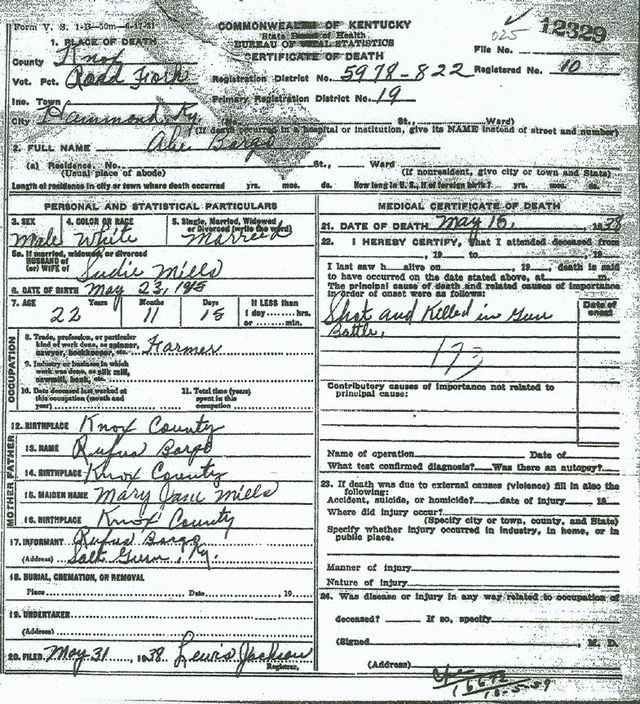 Form V. S. 1-B-50m-4-17-31
COMMONWEALTH OF KENTUCKY
State Board of Health
BUREAU OF VITAL STATISTICS
CERTIFICATE OF DEATH
025 12329
File No.
Registered No. 10
1. PLACE OF DEATH
County Knox
Vot. Pct. Road Fork
Registration District No. 5978-822
Inc. Town
Primary Registration District No. 19
City Hammond, Ky. No. St., Ward)
(If death occurred in a hospital or institution, give its NAME instead of street and number)
2. FULL NAME Abe Bargo
(a) Residence. No. St., Ward
(Usual place of abode) (If nonresident, give city or town and State)
Length of residence in city or town where death occurred yrs. mos. ds. How long in U. S., if of foreign birth? yrs. mos. ds.
PERSONAL AND STATISTICAL PARTICULARS
3. SEX 4. COLOR OR RACE 5. Single, Married, Widowed
or Divorced (write the word)
Male White Married
5a. If married, widowed, or divorced
HUSBAND of
(or) WIFE of Sudie Mills
6. DATE OF BIRTH May 23, 1915
7. AGE Years Months Days If LESS than
22 11 15 1 day hrs.
or min.
OCCUPATION
8. Trade, profession, or particular
kind of work done, as spinner,
sawyer, bookkeeper, etc. Farmer
9. Industry or business in which
work was done, as silk mill,
sawmill, bank, etc.
10. Date deceased last worked at
this occupation (month and
year)
11. Total time (years)
spent in this
occupation
12. BIRTHPLACE Knox County
FATHER
13. NAME Rufus Bargo
14. BIRTHPLACE Knox County
MOTHER
15. MAIDEN NAME Mary Jane Mills
16. BIRTHPLACE Knox County
17. INFORMANT Rufus Bargo
(Address) Salt Gum, Ky.
18. BURIAL, CREMATION, OR REMOVAL
Place Date , 19
19. UNDERTAKER
(Address)
20. FILED May 31, 1938 Lewis Jackson
Registrar.
MEDICAL CERTIFICATE OF DEATH
21. DATE OF DEATH May 15, 1938
22. I HEREBY CERTIFY, That I attended deceased from
, 19 to , 19
I last saw h alive on , 19 , death is said
to have occurred on the date stated above, at m.
The principal cause of death and related causes of importance
in order of onset were as follows:
Date of
onset
Shot and Killed in Gun
Battle,
173
Contributory causes of importance not related to
principal cause:
Name of operation Date of
What test confirmed diagnosis? Was there an autopsy?
23. If death was due to external causes (violence) fill in also the
following:
Accident, suicide, or homicide? date of injury 19
Where did injury occur?
(Specify city or town, county, and State)
Specify whether injury occurred in industry, in home, or in
public place.
Manner of injury
Nature of injury
24. Was disease or injury in any way related to occupation of
deceased? If so, specify
(Signed , M. D.
(Address)